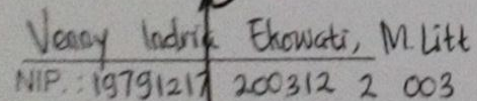 Venny Indria Ekowati, M. Litt
NIP. : 19791217 200312 2 003